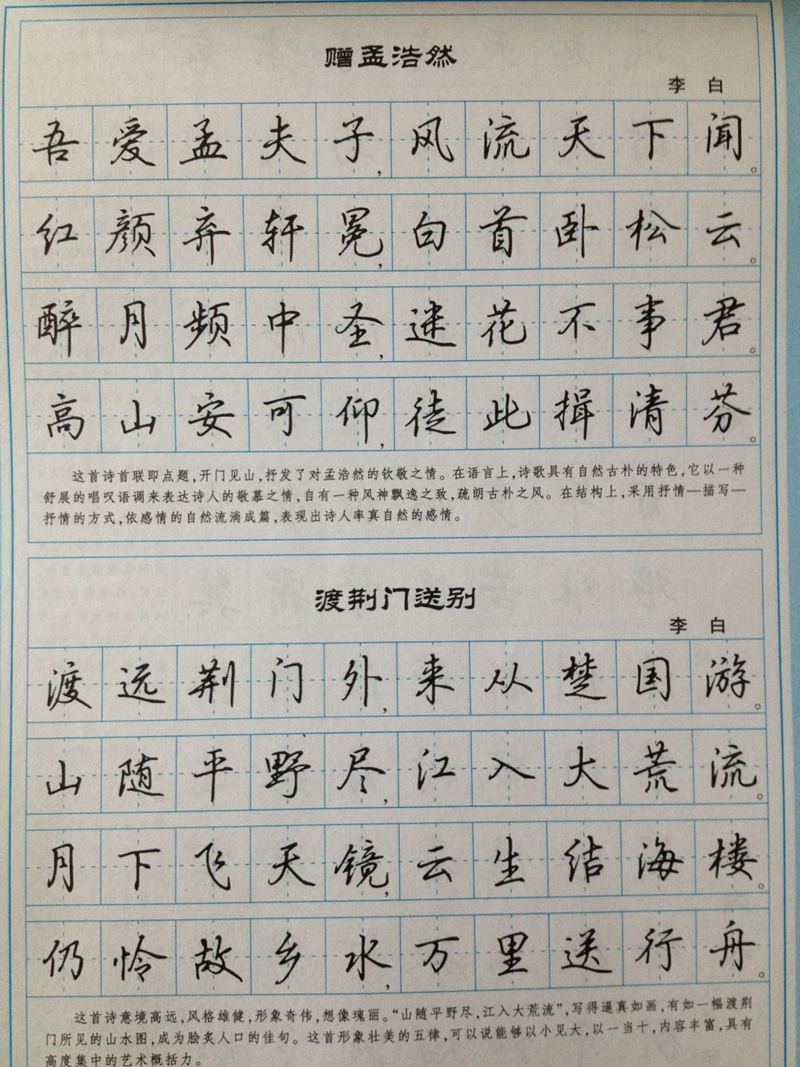 赠孟浩然
李 白
吾爱孟夫子,风流天下闻。
红颜弃轩冕,白首卧松云。
醉月频中圣,迷花不事君。
高山安可仰,徒此揖清芬。
这首诗首联即点题,开门见山,抒发了对孟浩然的钦敬之情。在语言上,诗歌具有自然古朴的特色,它以一种
舒展的唱叹语调来表达诗人的敬慕之情,自有一种风神飘逸之致,疏朗古朴之风。在结构上,采用抒情—描写—
抒情的方式,依感情的自然流淌成篇,表现出诗人率真自然的感情。
渡荆门送别
李 白
渡远荆门外,来从楚国游。
山随平野尽,江入大荒流。
月下飞天镜,云生结海楼。
仍怜故乡水,万里送行舟。
这首诗意境高远,风格雄健,形象奇伟,想像瑰丽。“山随平野尽,江入大荒流”,写得逼真如画,有如一幅渡荆
门所见的山水图,成为脍炙人口的佳句。这首形象壮美的五律,可以说能够以小见大,以一当十,内容丰富,具有
高度集中的艺术概括力。